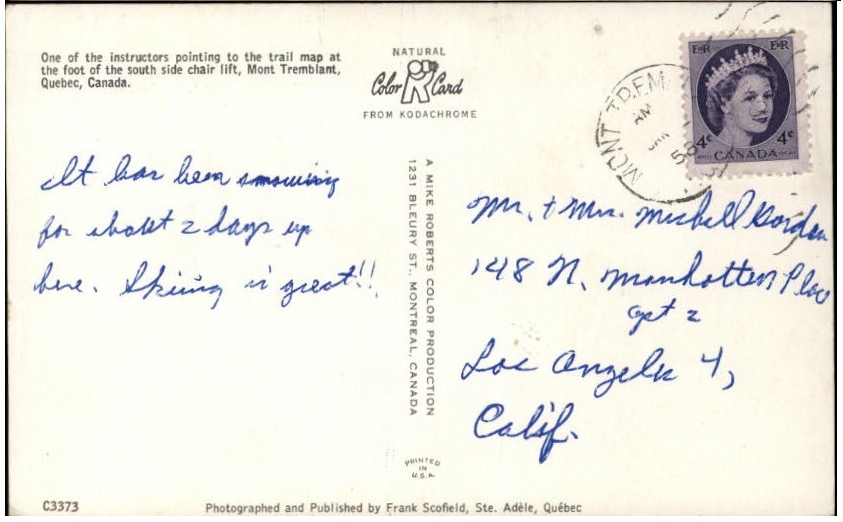 One of the instructors pointing to the trail map at
the foot of the south side chair lift, Mont Tremblant,
Quebec, Canada.
NATURAL
Color Card
FROM KODACHROME
E II R E II R
4¢ 4¢
CANADA
MONT TREM
AM
JAN
58
It has been snowing
for about 2 days up
here. Skiing is great!!
A MIKE ROBERTS COLOR PRODUCTION
1231 BLEURY ST., MONTREAL, CANADA
Mr. & Mrs. Michell Gordon
148 N. Manhatten Place
apt 2
Los Angeles 4,
Calif.
PRINTED
IN
U.S.A.
C3373
Photographed and Published by Frank Scofield, Ste. Adèle, Québec